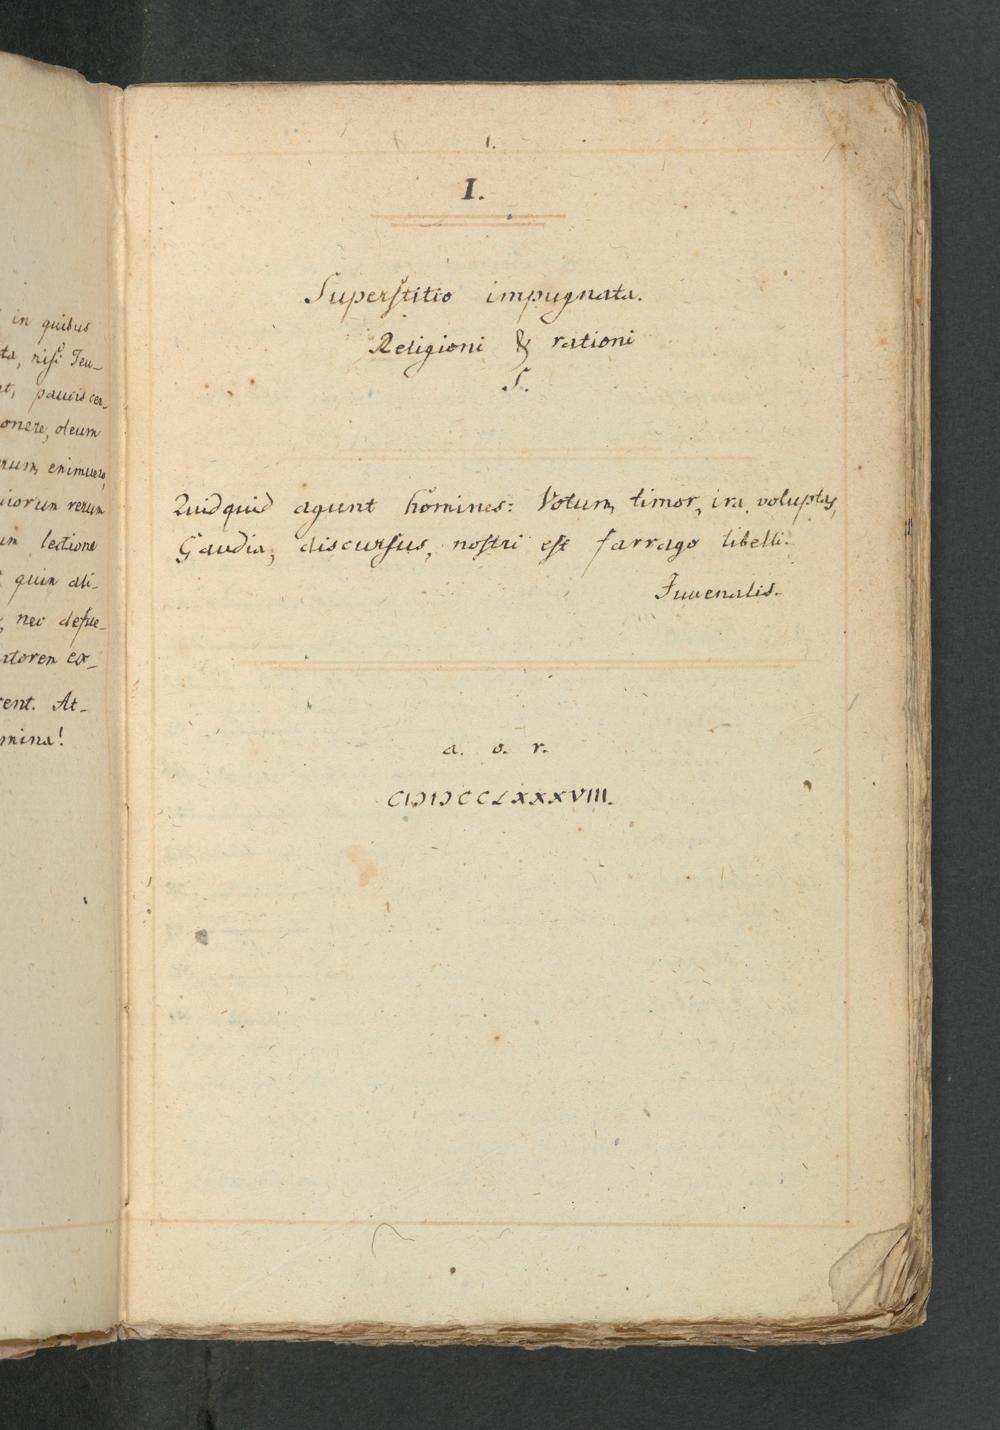 in quibus
ta, nisi Teu-
nt, paucis cer-
onere, oleum
rum, enimuero,
uiorum rerum
um lectione
quin ali-
, nec defue-
ctorem ex-
rent. At-
mina!
1.
I.
Superſtitio impugnata.
Religioni & rationi
S.
Quidquid agunt homines: Votum, timor, ira, voluptas,
Gaudia, discurſus, noſtri eſt farrago libelli.
Juuenalis.
a. o. r.
CIƆIƆCCLXXXVIII.